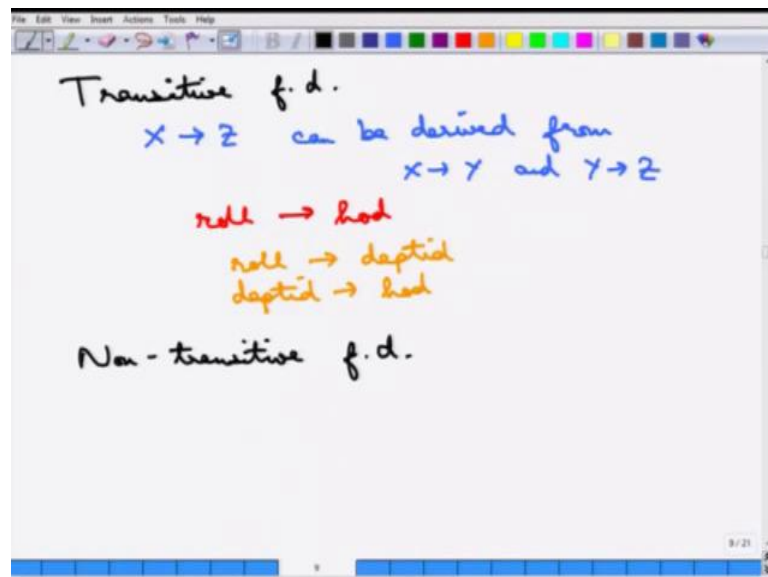 File Edit View Insert Actions Tools Help
Transitive f.d.
X → Z can be derived from
X → Y and Y → Z
roll → hod
roll → deptid
deptid → hod
Non-transitive f.d.
9/21
9